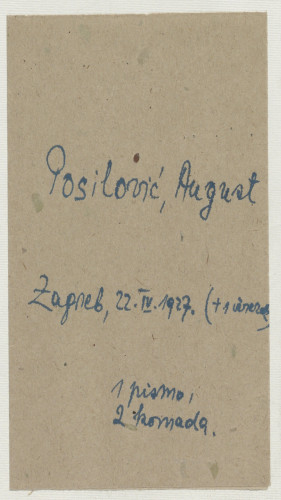 Posilović, August
Zagreb, 22. IV. 1927. (+ 1
1 pismo,
2 komada.